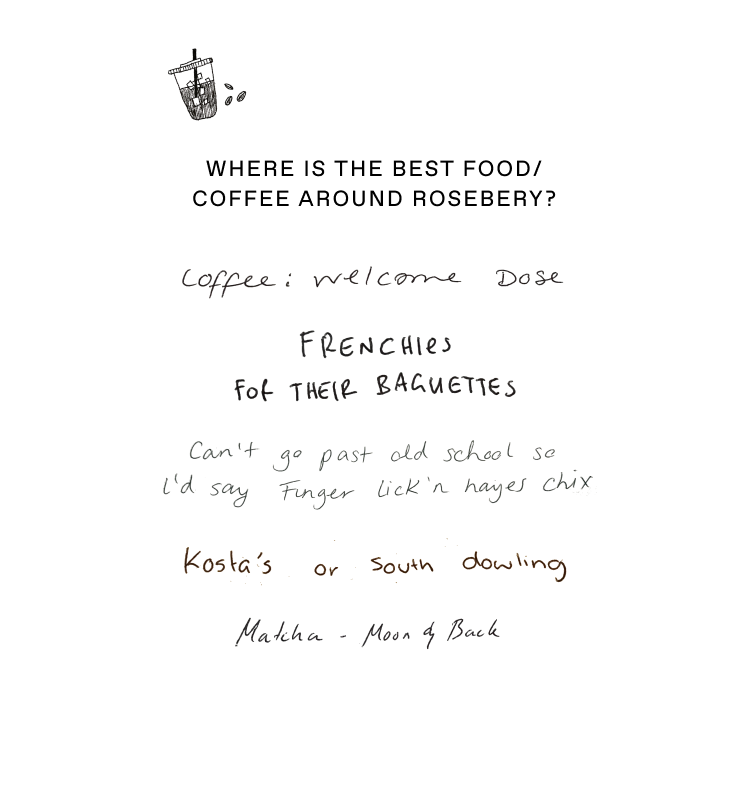 WHERE IS THE BEST FOOD/
COFFEE AROUND ROSEBERY?
Coffee: Welcome Dose
FRENCHIES
FOR THEIR BAGUETTES
Can't go past old school so
I'd say Finger lick'n hayes chix
Kosta's or South dowling
Matcha - Moon & Back